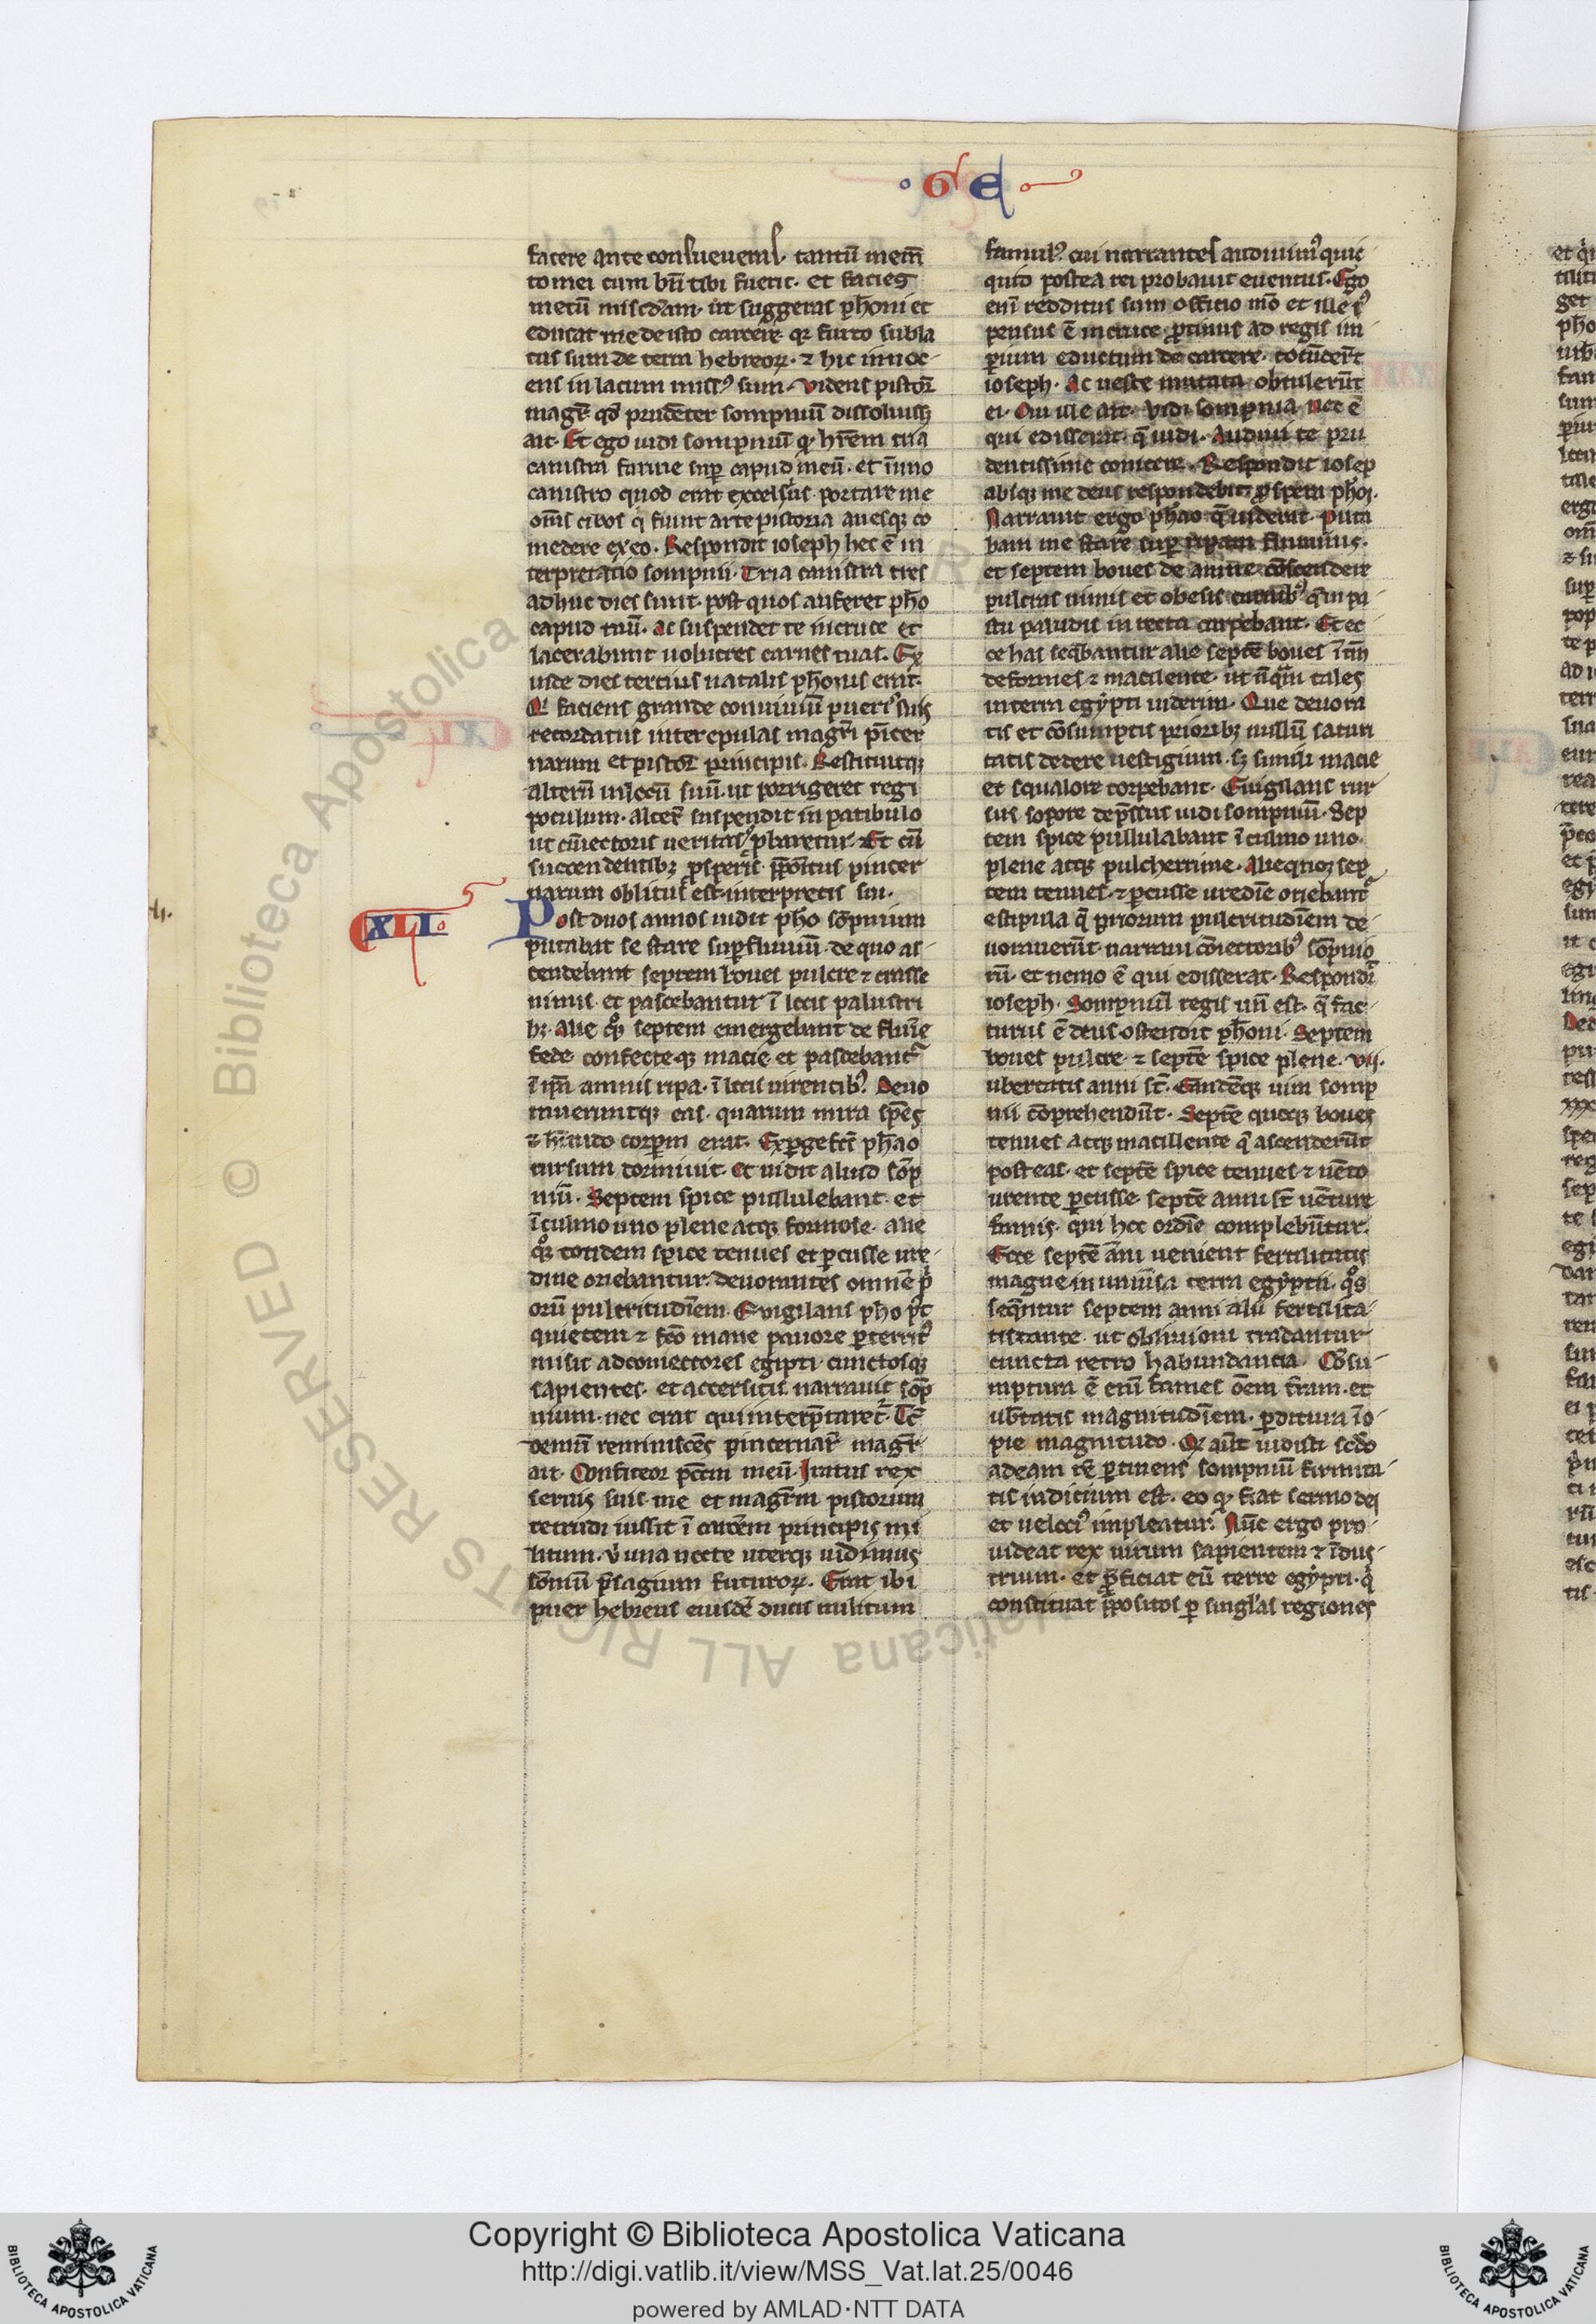 GE
facere ante consueueras. tantū mem̄
to mei cum bn̄ tibi fuerit. et facies
mecū miscđiam. ut suggeras pħoni et
educat me de isto carcere. qꝛ furto subla
tus sum de terra hebreoꝝ. ⁊ hic innoc-
ens in lacum missꝰ sum. Videns pistoꝝ
magr̄ qđ prudēter sompniū dissoluissꝫ
ait. Et ego uidi sompniū ꝙ hr̄em tria
canistra farine suꝑ capud meū. et ī uno
canistro quod erat excelsius portare me
om̄s cibos q̇ fiunt arte pistoria auesqꝫ co
medere ex eo. Respondit ioseph hec ē in
terpretatio sompnii. Tria canistra tres
adhuc dies sunt. post quos auferet pħo
capud tuū. ac suspendet te in cruce et
lacerabunt uolucres carnes tuas. Ex
inde dies tercius natalis pħonis erat.
Qi faciens grande conuiuiū pueris suis
recordatus inter epulas magr̄i pīcer
narum et pistoꝝ principis. Restituitqꝫ
alterū in locū suū. ut porrigeret regi
poculum. alterū suspendit in patibulo
ut cōiectoris ueritas ꝓbaretur. Et cū
succendentibꝫ ꝓsperis. p̄positus pincer
narum oblitus est interpretis sui.
XLI.
Post duos annos uidit pħo sōpnium
putabat se stare suꝑ fluuiū. de quo as-
cendebant septem boues pulcre ⁊ crasse
nimis. et pascebantur ī locis palustri
bꝫ. alie qͦꝫ septem emergebant de fluīe
fede confecteqꝫ macie. et pascebantᷣ
ī ip̄a amnis ripa. ī locis uirentibꝰ. Deuo
raueruntqꝫ eas. quarum mira spēs
⁊ habitudo corporum erat. Exꝑgefcūs pħao
rursum dormiuit. et uidit aliud sōp
niū. Septem spice pullulebant. et
ī culmo uno plene atqꝫ formose. alie
qͦꝫ totidem spice tenues et ꝑcusse ure-
dine oriebantur. deuorantes omnē pͥ
orū pulcritudīem. Euigilans pħo pꝰt
quietem. ⁊ fc̄o mane pauore ꝑterritꝰ
misit ad coniectores egipti. cunctosqꝫ
sapientes. et accersitis narrauit sōp
nium. nec erat qui interp̄taretᷣ. Tc̄
demū reminiscēs pincernaꝝ magr̄
ait. Confiteor pcc̄m meū. Iratus rex
seruis suis. me et magr̄m pistorum
retrudi iussit ī carcēm principis mi
litum. vͥ una nocte uterqꝫ uidimus
sōniū p̄sagium futuroꝝ. Erat ibi
puer hebreus eiusdē ducis militum
famulꝰ. cui narrantes audiuimꝰ quic-
quid postea rei probauit euentus. Ego
enī redditus sum officio mō et ille sꝰ
pensus ē in cruce. ꝓtinus ad regis im-
perium eductum de carcere. totūderūt
ioseph. Ac ueste mutata obtulerūt
ei. Cui ille ait. Vidi sompnia nec ē
qui edisserat. q̄ uidi. Audiui te pru
dentissime conicere. Respondit iosep
absqꝫ me deus respondebit ꝓspera pħoi.
Narrauit ergo pħao q̄ uiderat. Puta
bam me stare suꝑ ripam fluminis.
et septem boues de amne cōscendere
pulcras nimis et obesis carnibꝰ. q̄ in pa-
stu paludis in recta carpebant. Et ec-
ce has seq̄bantur alie septē boues ī tm̄
deformes ⁊ macilente. ut nūqͣm tales
in terra egypti uiderim. Que deuora
tis et cōsumptis prioribꝫ nullū saturi
tatis dedere uestigium. sꝫ simili macie
et squalore torpebant. Euigilans rur
sus sopore dep̄ssus uidi sompniū. Sep
tem spice pullulabant ī culmo uno.
plene atqꝫ pulcherrime. alieqꝫ sep
tem tenues. ⁊ ꝑcusse uredīe oriebantᷣ
estipula. q̄ priorum pulcritudīem de-
uorauerūt. narraui cōiectoribꝰ sōpnio
rū. et nemo ē qui edisserat. Respondit
ioseph. Sompniū regis unū est. q̄ fac-
turus ē deus ostendit pħoni. Septem
boues pulcre. ⁊ septē spice plene. vii.
ubertatis anni st̄. Eandēqꝫ uim somp
nii cōprehendūt. Septē quoqꝫ boues
tenues atqꝫ macillente q̄ ascenderūt
post eas. et septē spice tenues ⁊ uēto
urente ꝑcusse. septē anni st̄ uēture
famis. qui hoc ordīe complebūtur.
Ecce septē ānī uenient fertilitatis
magne in uniūsa terra egypti. qͦs
seq̄ntur septem anni alii sterilita-
tis tante. ut obliuioni tradantur
cuncta retro habundancia. Cōsu-
mptura ē enī fames ōem tr̄am. et
ub̄tatis magnitudīem. ꝑditura īo-
pie magnitudo. Qi aūt uidisti scđo
ad eam rē ꝑtinens sompniū firmita-
tis indicium est. eo ꝙ fiat sermo dei
et uelociꝰ impleatur. Nūc ergo pro-
uideat rex uirum sapientem ⁊ īdus-
trium. et p̄ficiat eū terre egypti. qͥ
constituat p̄positos ꝑ singl̄as regiones
Copyright © Biblioteca Apostolica Vaticana
http://digi.vatlib.it/view/MSS_Vat.lat.25/0046
powered by AMLAD·NTT DATA